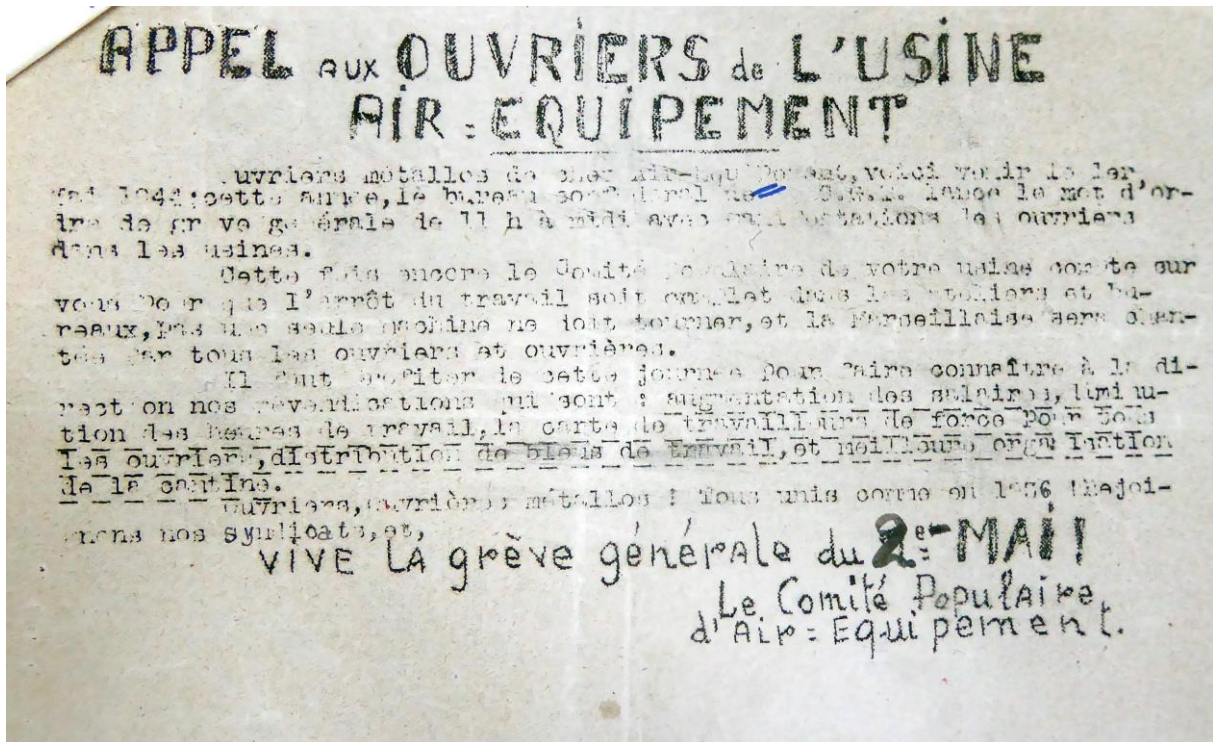 APPEL AUX OUVRIERS de L'USINE
AIR = EQUIPEMENT
uvriers métallos de chez Air-Equ voici venir le 1er
Mai 1944; cette année, le bureau de C.G.T. lance le mot d'or-
dre de gr ve générale de 11 h à midi avec des ouvriers
dans les usines.
Cette fois encore le Comité populaire de votre usine compte sur
vous pour que l'arrêt du travail soit complet dans les ateliers et bu-
reaux, pas une seule machine ne doit tourner, et la Marseillaise sera chan-
tée par tous les ouvriers et ouvrières.
Il faut profiter de cette journée pour faire connaître à la di-
rect on nos revendications qui sont : augmentation des salaires, diminu-
tion des heures de travail, la carte de travailleurs de force pour tous
les ouvriers, distribution de bleus de travail, et meilleure orga isation
de la cantine.
Ouvriers, ouvrières métallos ! Tous unis comme en 1936 ! Rejoi-
gnons nos syndicats, et,
VIVE LA grève générale du 2e MAI !
Le Comité Populaire
d'Air = Equipement.